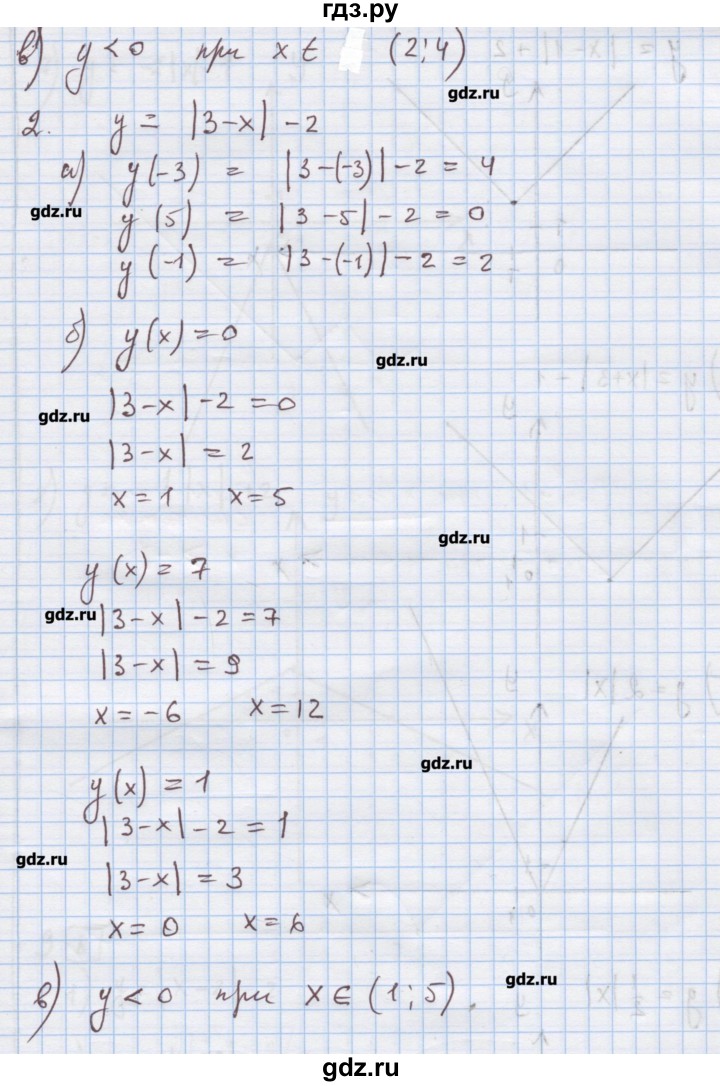 гдз.ру
в) y < 0 при x ∈ (2; 4)
gdz.ru
2. y = |3-x| - 2
а) y(-3) = |3-(-3)| - 2 = 4
gdz.ru
y(5) = |3-5| - 2 = 0
y(-1) = |3-(-1)| - 2 = 2
б) y(x) = 0
gdz.ru
|3-x| - 2 = 0
gdz.ru
|3-x| = 2
x = 1 x = 5
gdz.ru
y(x) = 7
gdz.ru
|3-x| - 2 = 7
|3-x| = 9
x = -6 x = 12
gdz.ru
y(x) = 1
|3-x| - 2 = 1
gdz.ru
|3-x| = 3
x = 0 x = 6
gdz.ru
в) y < 0 при x ∈ (1; 5).
gdz.ru